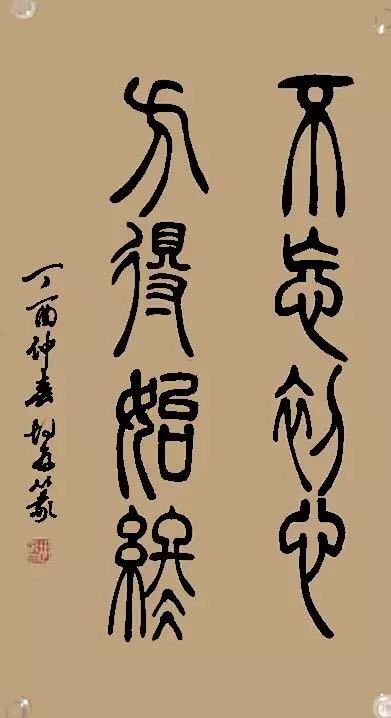 不忘初心
方得始終
丁酉仲春篆